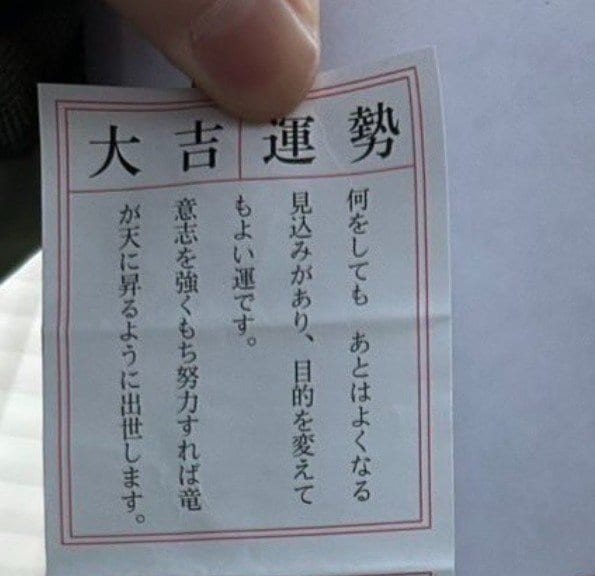 勢運
吉大
何をしても　あとはよくなる
見込みがあり、目的を変えて
もよい運です。
意志を強くもち努力すれば竜
が天に昇るように出世します。